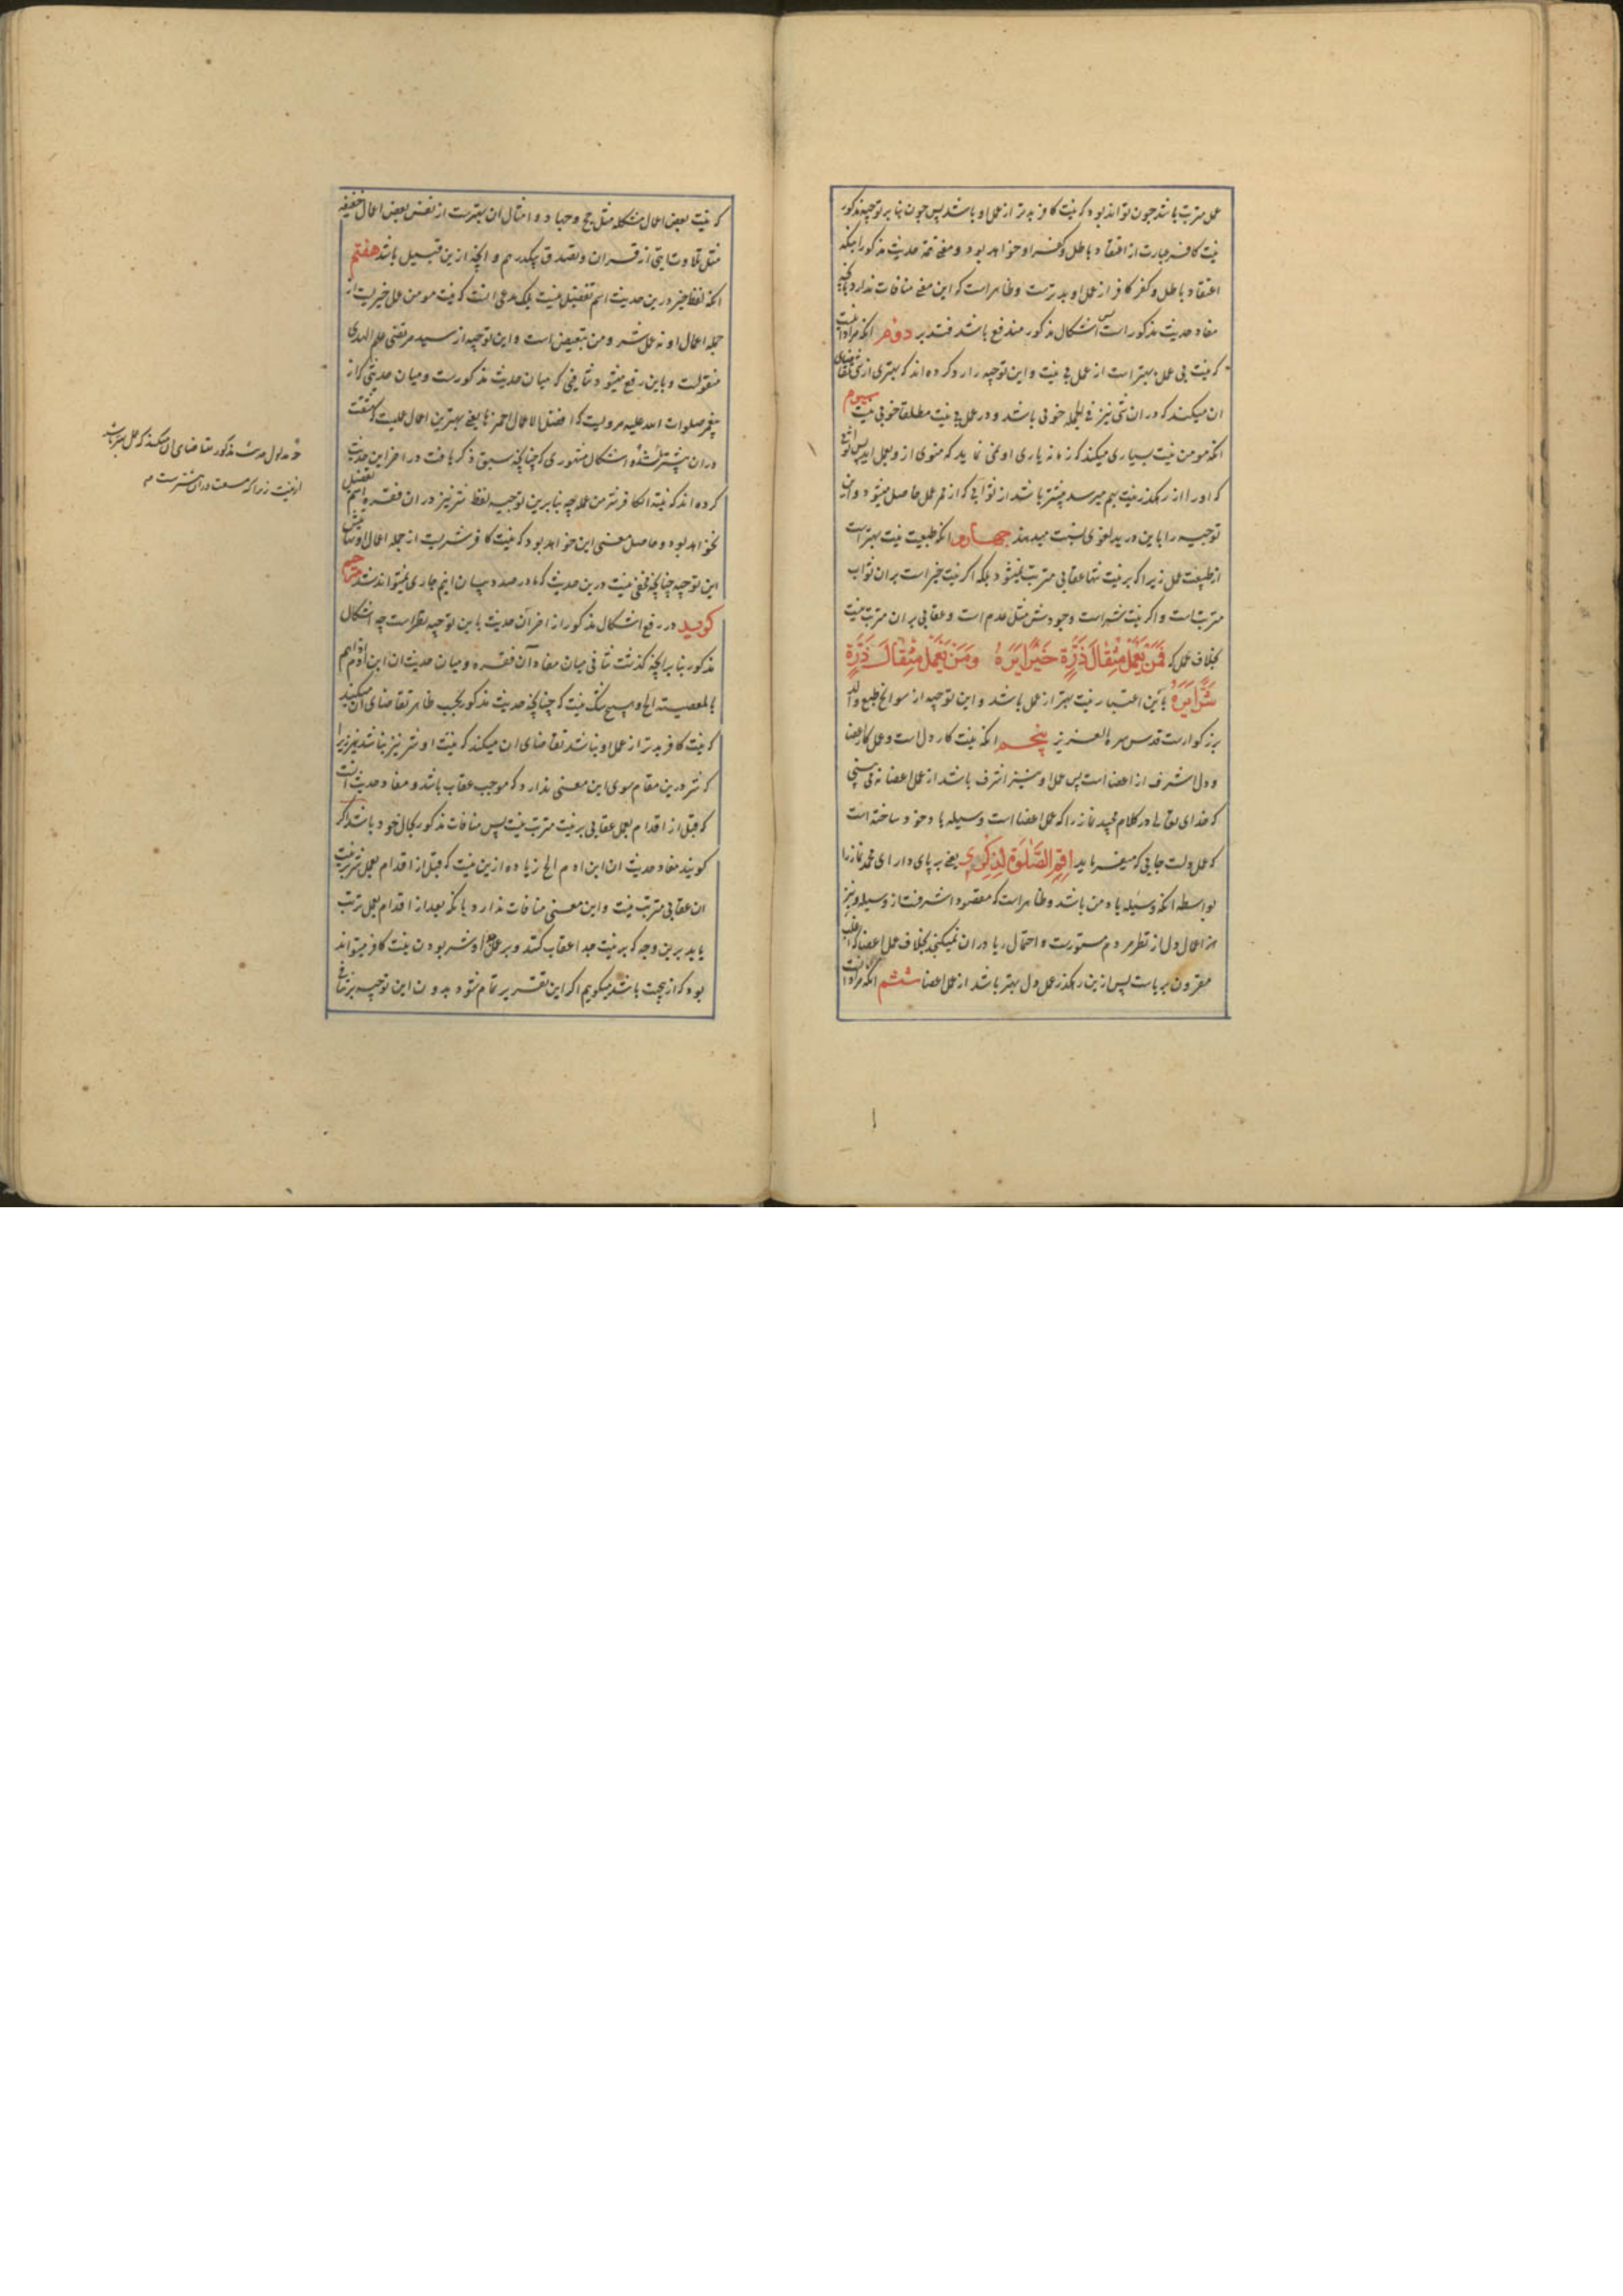 عمل مترتب باشد چون تواند بود که نیت کافر بدتر از عمل او باشد پس چون بنا بر توجیه مذکور
نیت کافر عبارت از اعتقاد باطل و کفر او خواهد بود و معنی تتمه حدیث مذکور اینکه
اعتقاد باطل و کفر کافر از عمل او بدترست و ظاهر است که این معنی منافات ندارد بآنچه
مفاد حدیث مذکور است پس اشکال مذکور مندفع باشد فتدبر دوم آنکه مراد آنست
که نیت بی عمل بهتر است از عمل بی نیت و این توجیه را رد کرده‌اند که بهتری از شی تقاضای
آن میکند که در آن شی نیز فی الجمله خوبی باشد و در عمل بی نیت مطلقا خوبی نیست سیوم
آنکه مومن نیت بسیاری میکند که زمانه یاری او نمی نماید که منوی او بعمل آید پس ثوابی
که او را از رهگذر نیت بهم میرسد بیشتر باشد از ثوابی که از ممر عمل حاصل میشود و این
توجیه را بابن درید لغوی نسبت میدهند چهارم آنکه طبیعت نیت بهتر است
از طبیعت عمل زیرا که بر نیت تنها عقابی مترتب نمیشود بلکه اگر نیت خیر است بر آن ثواب
مترتب است و اگر نیت شر است وجودش مثل عدم است و عقابی بر آن مترتب نیست
بخلاف عمل که فَمَنْ یَعْمَلْ مِثْقالَ ذَرَّةٍ خَیْرًا یَرَهُ وَمَنْ یَعْمَلْ مِثْقالَ ذَرَّةٍ
شَرًّا یَرَهُ باین اعتبار نیت بهتر از عمل باشد و این توجیه از سوانح طبع والد
بزرگوارست قدس سره العزیز پنجم آنکه نیت کار دل است و عمل کار اعضا
و دل اشرف از اعضا است پس عمل او نیز اشرف باشد از عمل اعضا نمی بینی
که خدای تعالی در کلام مجید نماز را که عمل اعضا است وسیله یاد خود ساخته است
که عمل دلست جایی که میفرماید اَقِمِ الصَّلوةَ لِذِکْری یعنی بر پای دار ای محمد نماز را
بواسطه آنکه وسیله یاد من باشد و ظاهر است که مقصود اشرفست از وسیله و نیز
اعمال دل از نظر مردم مستورست و احتمال ریا در آن نمیگنجد بخلاف عمل اعضا که اغلب
مقرون بریاست پس ازین رهگذر عمل دل بهتر باشد از عمل اعضا ششم آنکه مراد آنست
که نیت بعض اعمال مشکله مثل حج و جهاد و امثال آن بهترست از نفس بعض اعمال خفیفه
مثل تلاوت آیتی از قرآن و تصدق بیکدرهم و آنچه ازین قبیل باشد هفتم
آنکه لفظ خیر درین حدیث اسم تفضیل نیست بلکه مدعی اینست که نیت مومن عمل خیریست از
جمله اعمال او نه عمل شر و من تبعیض است و این توجیه از سید مرتضی علم الهدی
منقولست و باین رفع میشود تنافی که میان حدیث مذکورست و میان حدیثی که از
پیغمبر صلوات الله علیه مرویست که افضل الاعمال احمزها یعنی بهترین اعمال عملیست که مشقت
در آن بیشتر باشد و اشکال مشهوری که چنانچه سبق ذکر یافت در آخر این حدیث
کرده‌اند که نیة الکافر شر من عمله چه بنا برین توجیه لفظ شر نیز در آن فقره اسم تفضیل
نخواهد بود و حاصل معنی این خواهد بود که نیت کافر شریست از جمله اعمال او
این توجیه چنانچه مخفی نیست درین حدیث که ما درصدد بیان آنیم جاری نمیتواند شد مترجم
گوید در رفع اشکال مذکور از آخر آن حدیث باین توجیه نظر است چه اشکال
مذکور بنا بر آنچه گذشت تنافی میان مفاد آن فقره و میان حدیث ان ابن آدم اذا هم
بالمعصیته الخ و هیچ شک نیست که چنانچه حدیث مذکور بحسب ظاهر تقاضای آن میکند
که نیت کافر بدتر از عمل او نباشد تقاضای آن میکند که نیت او شر نیز نباشد زیرا
که شر درین مقام سوی این معنی ندارد که موجب عقاب باشد و مفاد حدیث آنست
که قبل از اقدام بعمل عقابی بر نیت مترتب نیست پس منافات مذکور بحال خود باشد اگر
گویند مفاد حدیث ان ابن آدم الخ زیاده ازین نیست که قبل از اقدام بعمل شر بر نیت
آن عقابی مترتب نیست و این معنی منافات ندارد با آنکه بعد از اقدام بعمل ترتب
یابد برین وجه که بر نیت جدا عقاب کنند و بر عمل جدا و شر بودن نیت کافر میتواند
بود که ازین جهت باشد میگوییم اگر این تقریر تمام شود بدون این توجیه نیز تنافی
مدلول حدیث مذکور تقاضای آن میکند که عمل بهتر باشد
از نیت زیرا که مشقت در آن بیشترست